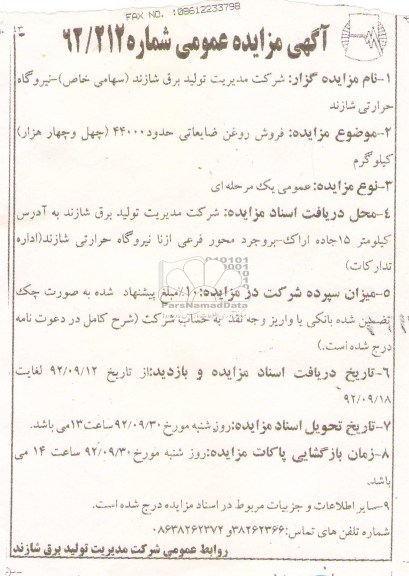 FAX NO. :08612233798
آگهی مزایده عمومی شماره ۹۲/۲۱۲
۱-نام مزایده گزار: شرکت مدیریت تولید برق شازند (سهامی خاص)-نیروگاه
حرارتی شازند
۲-موضوع مزایده: فروش روغن ضایعاتی حدود ۴۴۰۰۰ (چهل وچهار هزار)
کیلوگرم
۳-نوع مزایده: عمومی یک مرحله ای
۴-محل دریافت اسناد مزایده: شرکت مدیریت تولید برق شازند به آدرس
کیلومتر ۱۵جاده اراک-بروجرد محور فرعی ازنا نیروگاه حرارتی شازند(اداره
تدارکات)
۵-میزان سپرده شرکت در مزایده: ۱۰٪مبلغ پیشنهاد شده به صورت چک
تضمین شده بانکی یا واریز وجه نقد به حساب شرکت (شرح کامل در دعوت نامه
درج شده است.)
۶-تاریخ دریافت اسناد مزایده و بازدید:از تاریخ ۹۲/۰۹/۱۲ لغایت
۹۲/۰۹/۱۸
۷-تاریخ تحویل اسناد مزایده:روز شنبه مورخ ۹۲/۰۹/۳۰ساعت۱۳می باشد.
۸-زمان بازگشایی پاکات مزایده:روز شنبه مورخ ۹۲/۰۹/۳۰ ساعت ۱۴ می
باشد.
۹-سایر اطلاعات و جزییات مربوط در اسناد مزایده درج شده است.
شماره تلفن های تماس:۳۸۲۶۲۳۶۶و ۰۸۶۳۸۲۶۲۳۷۲
روابط عمومی شرکت مدیریت تولید برق شازند
ParsNamadData